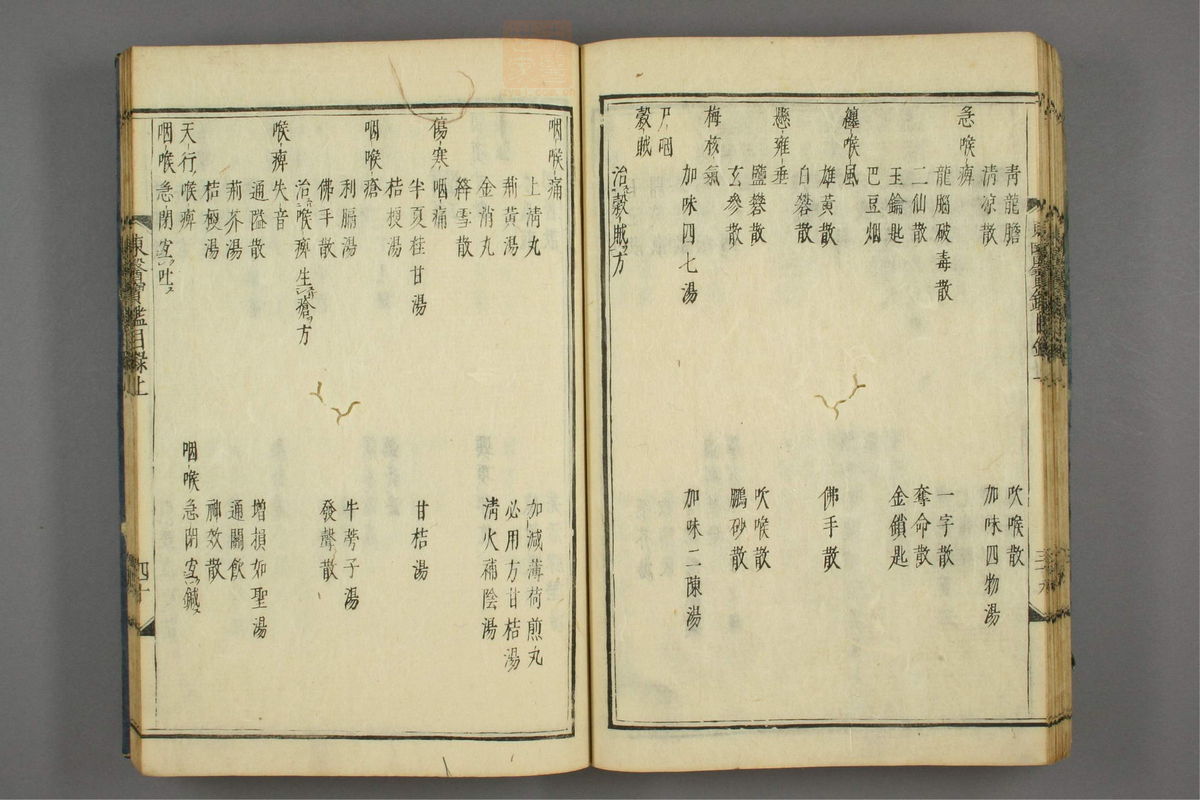 青龍膽
吹喉散
清凉散
加味四物湯
急喉痹
龍腦破毒散
一字散
二仙散
奪命散
玉鑰匙
金鎖匙
巴豆烟
纏喉風
雄黃散
佛手散
白礬散
懸雍垂
鹽礬散
吹喉散
玄參散
鵬砂散
梅核氣
加味四七湯
加味二陳湯
尸咽
穀賊
治穀賊方
咽喉痛
上淸丸
加減薄荷煎丸
荊黃湯
必用方甘桔湯
金消丸
淸火補陰湯
絳雪散
傷寒咽痛
半夏桂甘湯
甘桔湯
桔梗湯
咽喉瘡
利膈湯
牛蒡子湯
佛手散
發聲散
治喉痹生瘡方
喉痹失音
通隘散
增損如聖湯
荊芥湯
通關飮
桔梗湯
神效散
天行喉痹
咽喉急閉宜鍼
咽喉急閉宜吐
東醫寶鑑目錄上
四十